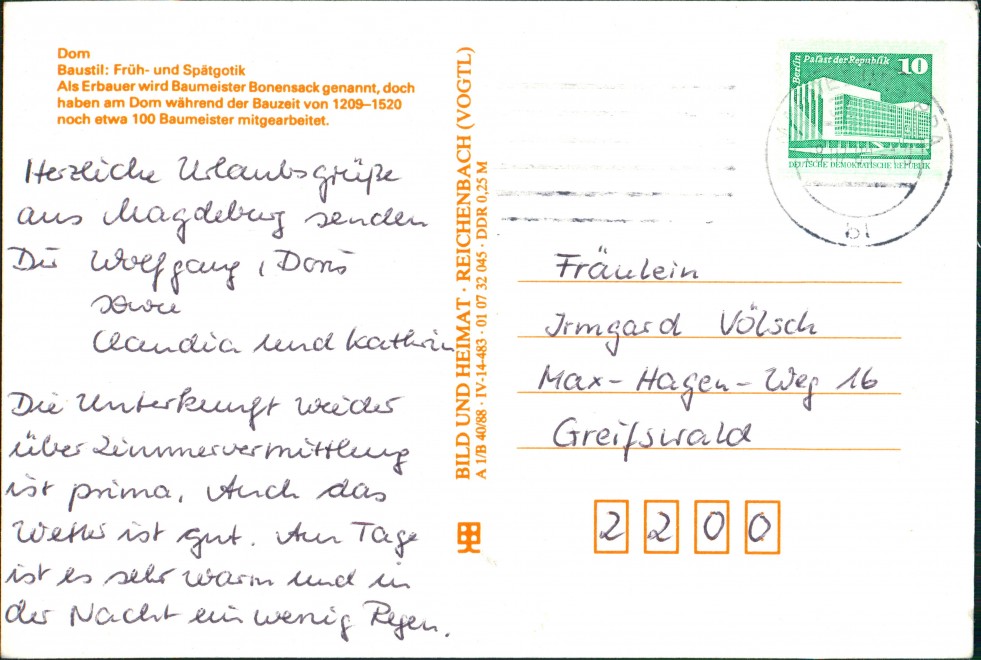 Dom
Baustil: Früh- und Spätgotik
Als Erbauer wird Baumeister Bonensack genannt, doch
haben am Dom während der Bauzeit von 1209–1520
noch etwa 100 Baumeister mitgearbeitet.
Herzliche Urlaubsgrüße
aus Magdeburg senden
Dir Wolfgang, Doris
sowie
Claudia und Kathrin
Die Unterkunft wieder
über Zimmervermittlung
ist prima. Auch das
Wetter ist gut. Am Tage
ist es sehr warm und in
der Nacht ein wenig Regen.
BILD UND HEIMAT · REICHENBACH (VOGTL)
A 1/B 40/88 · IV-14-483 · 01 07 32 045 · DDR 0,25 M
Berlin
Palast der Republik
10
DEUTSCHE DEMOKRATISCHE REPUBLIK
bl
Fräulein
Irmgard Völsch
Max-Hagen-Weg 16
Greifswald
2200